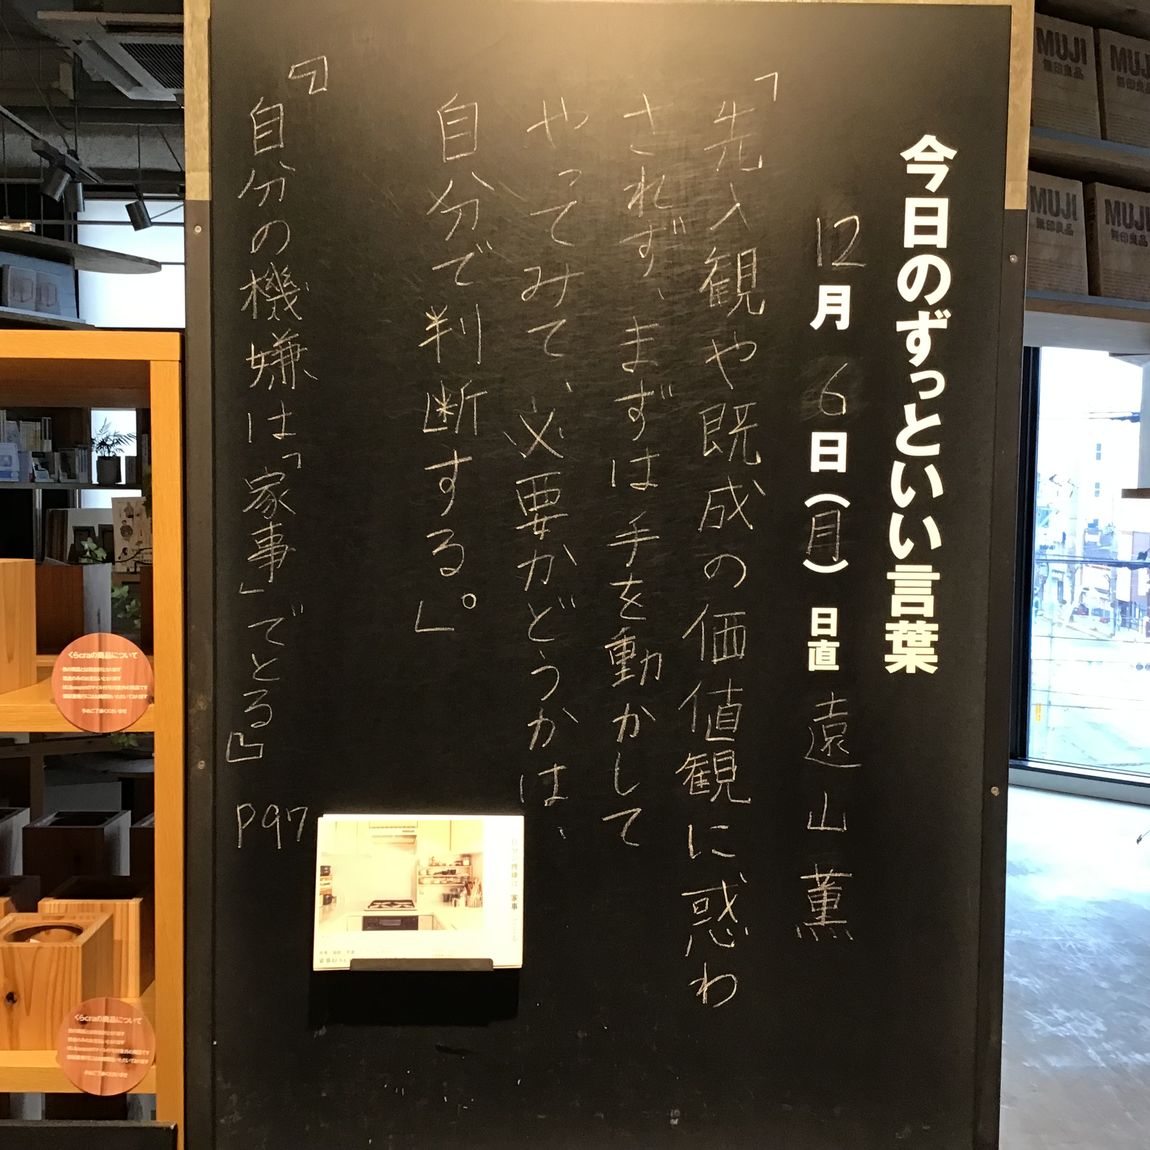 今日のずっといい言葉
12月6日(月) 日直 遠山薫
「先入観や既成の価値観に惑わ
されず、まずは手を動かして
やってみて、必要かどうかは、
自分で判断する。」
『自分の機嫌は「家事」でとる』 P97
MUJI
無印良品
MUJI
無印良品
MUJI
無印良品
MUJI
無印良品
くらcraの商品について
くらcraの商品について